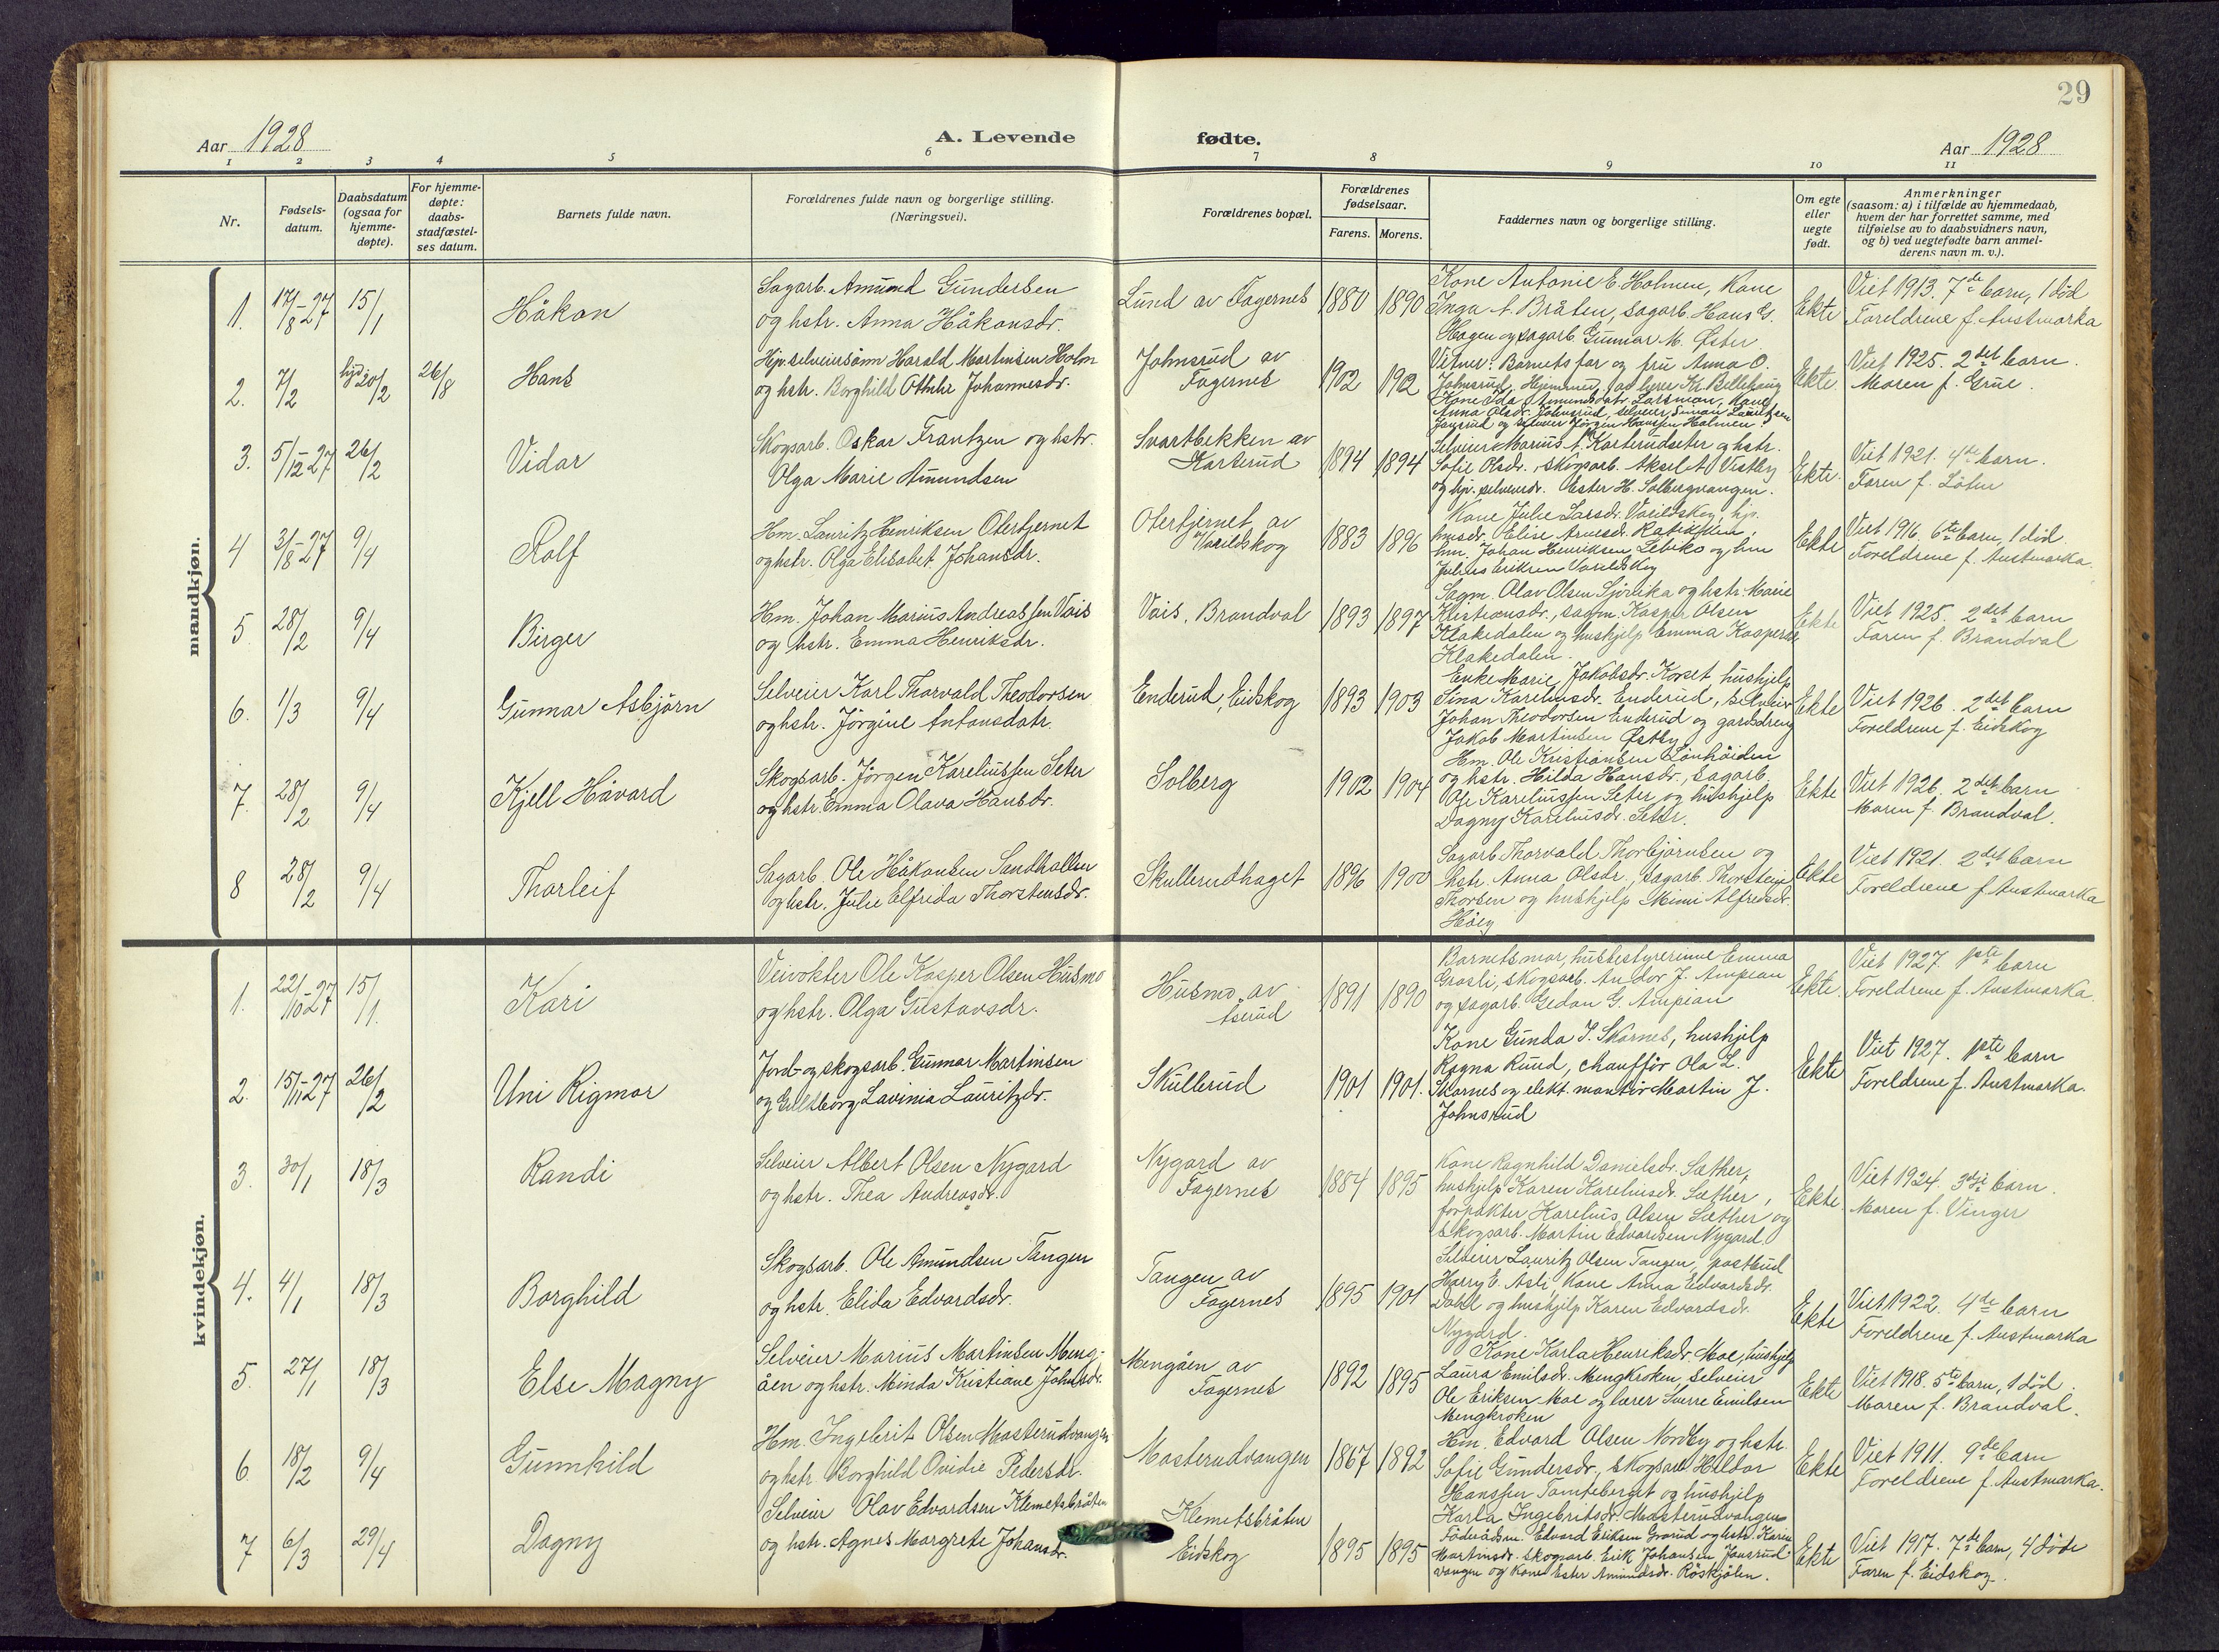 29
Aar 1928
A. Levende fødte.
Aar 1928
1 2 3 4 5 6 7 8 9 10 11
Nr.
Fødsels-
datum.
Daabsdatum
(ogsaa for
hjemme-
døpte).
For hjemme-
døpte:
daabs-
stadfæstel-
ses datum.
Barnets fulde navn.
Forældrenes fulde navn og borgerlige stilling.
(Næringsvei).
Forældrenes bopæl.
Forældrenes
fødselsaar.
Farens. Morens.
Faddernes navn og borgerlige stilling.
Om egte
eller
uegte
født.
Anmerkninger
(saasom: a) i tilfælde av hjemmedaab,
hvem der har forrettet samme, med
tilføielse av to daabsvidners navn,
og b) ved uegtefødte barn anmel-
derens navn m. v.).
mandkjøn.
1. 17/8-27 15/1 Håkon
Sagarb. Amund Gundersen
og hstr. Anna Håkonsdr.
Lund av Fagernes 1880 1890
Kone Antonie E. Holmen, Kone
Inga A. Bråten, sagarb. Hans G.
Hagen og sagarb. Gunnar M. Øster
Ekte
Viet 1913. 7de barn, 1 död
Foreldrene f. Austmarka
2. 7/2 20/2 26/8 Hans
Hjv. selveiersönn Harald Martinsen Holm
og hstr. Borghild Othilie Johannesdr.
Johnsrud av
Fagernes
1902 1902
Vitner: Barnets far og fru Anna O.
Johnsrud. Hjemmed. av lærer Kr. Bellehaug
Kone Ida Amundsdatr. Larsmon, Kone
Anna Olsdr. Johnsrud, selveier Simon Lauritsen
Jonsrud og selveier Jörgen Hansen Holmen.
Ekte.
Viet 1925. 2det barn.
Moren f. Grue.
3. 5/12-27 26/2 Vidar
Skogsarb. Oskar Frantzen og hstr.
Olga Marie Amundsen
Svartbekken av
Karterud
1894 1894
Selveier Marius A. Karterudseter og hstr.
Sofie Olsdr., skogsarb. Aksel A. Vestby
og hjv. selveierdr. Ester H. Solbergvangen.
Ekte.
Viet 1921. 4de barn.
Faren f. Löten
4 3/8-27 9/4 Rolf
Hm. Lauritz Henriksen Otertjernet
og hstr. Olga Elisabet Johansdr.
Otertjernet av
Varildskog
1883 1896
Kone Julie Larsdr. Varildskog, hjv.
hmsdr. Elise Arnesdr. Ratikken,
hm. Johan Henriksen Lebiko og hm
Julius Eriksen Varildskog
Ekte
Viet 1916. 6te barn, 1 död.
Foreldrene f. Austmarka.
5. 28/2 9/4 Birger
Hm. Johan Marius Andreassen Vais
og hstr. Emma Henriksdr.
Vais, Brandval 1893 1897
Sagm. Olav Olsen Sjörlika og hstr. Marie
Kristiansdr., sagm. Kasper Olsen
Klakedalen og hushjelp Emma Kaspersdr
Klakedalen.
Ekte
Viet 1925. 2det barn
Faren f. Brandval
6. 1/3 9/4 Gunnar Asbjörn
Selveier Karl Thorvald Theodorsen
og hstr. Jörgine Antonsdatr.
Enderud, Eidskog 1893 1903
Enke Marie Jakobsdr. Korset hushjelp
Sina Kareliusdr. Enderud, selveier
Johan Theodorsen Enderud og gardsdreng
Jakob Martinsen Östby
Ekte
Viet 1926. 2det barn
Foreldrene f. Eidskog
7. 28/2 9/4 Kjell Håvard
Skogsarb. Jörgen Kareliussen Seter
og hstr. Emma Olava Hansdr.
Solberg 1902 1904
Hm. Ole Kristiansen Lönhöiden
og hstr. Hilda Hansdr., sagarb.
Ole Kareliussen Seter og hushjelp
Dagny Kareliusdr. Seter.
Ekte
Viet 1926. 2det barn
Moren f. Brandval.
8 28/2 9/4 Thorleif
Sagarb. Ole Håkonsen Sandbakken
og hstr. Julie Elfrida Thorstensdr.
Skullerudhaget 1896 1900
Sagarb Thorvald Thorbjörnsen og
hstr. Anna Olsdr., sagarb. Thorstein
Thorsen og hushjelp Mimi Alfredsdr.
Höieg
Ekte
Viet 1921. 2det barn
Foreldrene f. Austmarka
kvindekjøn.
1. 22/10-27 15/1. Kari
Veivokter Ole Kasper Olsen Husmo
og hstr. Olga Gustavsdr.
Husmo av
Aserud
1891 1890
Barnets mor, husbestyrerinne Emma
Grasli, skogsarb. Andor J. Ampian
og sagarb. Gedan G. Ampian
Ekte.
Viet 1927. 1ste barn
Foreldrene f. Austmarka.
2. 15/11-27 26/2 Uni Rigmor
Jord- og skogsarb. Gunnar Martinsen
og Gullborg Lavinia Lauritzdr.
Skullerud 1901 1901.
Kone Gunda I. Skarnes, hushjelp
Ragna Rund, chaufför Ola L.
Skarnes og elekt. montör Martin J.
Johnsrud
Ekte
Viet 1927. 1ste barn
Foreldrene f. Austmarka.
3. 30/1 18/3 Randi
Selveier Albert Olsen Nygard
og hstr. Thea Andreasdr.
Nygard av
Fagernes
1884 1895
Kone Ragnhild Danielsdr. Sæther,
hushjelp Karen Kareliusdr. Sæther,
forpakter Karelius Olsen Sæther og
skogsarb. Martin Edvardsen Nygard.
Ekte.
Viet 1924. 3dje barn.
Moren f. Vinger
4. 4/1 18/3 Borghild
Skogsarb. Ole Amundsen Tangen
og hstr. Elida Edvardsdr.
Tangen av
Fagernes
1895 1901
Selveier Lauritz Olsen Tangen, postbud
Harry E. Asli, Kone Anna Edvardsdr.
Dahl og hushjelp Karen Edvardsdr.
Nygard.
Ekte
Viet 1922. 4de barn
Foreldrene f. Austmarka
5. 27/1 18/3 Else Magny
Selveier Marius Martinsen Meng-
åen og hstr. Minda Kristiane Johnsdr.
Mengåen av
Fagernes
1892 1895
Kone Karla Henriksdr. Moe, hushjelp
Laura Emilsdr. Mengkroken, selveier
Ole Eriksen Moe og lærer Sverre Emilsen
Mengkroken
Ekte
Viet 1918. 5te barn, 1 död.
Moren f. Brandval.
6. 18/2 9/4 Gunnhild
Hm. Ingebrit Olsen Masterudvangen
og hstr. Borghild Ovidie Pedersdr.
Masterudvangen 1867 1892
Hm. Edvard Olsen Nordby og hstr.
Sofie Gundersdr., skogsarb. Haldor
Hanssen Tomteberget og hushjelp
Karla Ingebritsdr. Masterudvangen
Ekte
Viet 1911. 9de barn
Foreldrene f. Austmarka.
7 6/3 29/4 Dagny
Selveier Olav Edvardsen Klemetsbråten
og hstr. Agnes Margrete Johansdr.
Klemetsbråten
Eidskog
1895 1895
Föderådsm. Edvard Eriksen Grorud og hstr. Karin
Martinsdr. skogsarb. Erik Johansen Jonsrud-
vangen og kone Ester Amundsdr. Röskjölen.
Ekte
Viet 1917. 7de barn, 4 döde
Faren f. Eidskog.